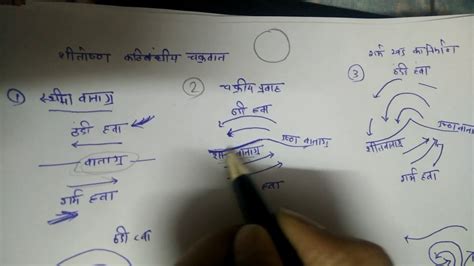 शीतोष्ण कटिबंधीय चक्रवात
① स्थायी वाताग्र
ठंडी हवा
वाताग्र
गर्म हवा
ठंडी हवा
② चक्रीय प्रवाह
ठंडी हवा
उष्ण वाताग्र
शीत वाताग्र
हवा
③ गर्म खंड का निर्माण
ठंडी हवा
शीतवाताग्र
उष्ण वाताग्र
गर्म हवा